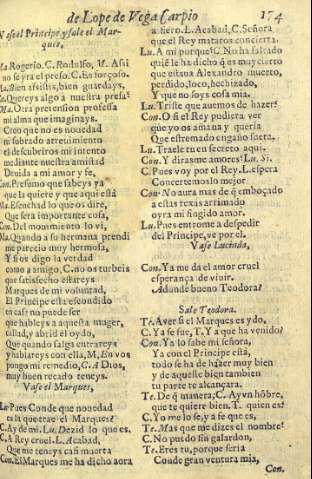 de Lope de Vega Carpio 174
Vase el Principe y sale el Marques.
Ma Rogerio. C. Rodolfo, M. Assi
no se yra el preso. C. Es forçoso.
Ma. Bien assistis, bien guardays,
Co. Quereys algo a nuestra presa?
Ma. Otra pretension professa
mi alma que imaginays.
Creo que no es nouedad
ni sobrado atreuimiento
el descubriros mi intento
mediante nuestra amistad
Deuida a mi amor y fe,
Con. Presumo que sabeys ya
que la quiete y que aqui està
Ma. Escuchad lo que os dire,
Que sera importante cosa,
Con. Del mouimiento lo vi,
Ma. Quando a su hermana prendi
me parecio muy hermosa,
Y si os digo la verdad
como a amigo, C. no os turbeis
que satisfecho estareys
Marques de mi voluntad,
El Principe esta escondido
en casa no puede ser
que hableys a aquesta muger,
callad, y abrid el oydo,
Que quando salga entrareys
y hablareys con ella, M, En vos
pongo mi remedio, C. A Dios,
muy buen recado teneys.
Vase el Marques,
Lu Pues Conde que nouedad
es la que trae el Marques?
C. Ay de mi es. Lu. Dezid lo que es.
C. A Rey cruel. L. Acabad,
Que me teneys casi muerta
Con. El Marques me ha dicho aora
a fiero. L. Acabad, C. Señora
que el Rey mataros concierta.
Lu. A mi porque? C. No ha faltado
quiē le ha dicho q̄ es muy cierto
que estaua Alexandro muerto,
perdido, loco, hechizado,
Y que no soys cosa mia,
Lu. Triste que auemos de hazer?
Con. O si el Rey pudiera ver
que yo os amaua y queria
Que estremado engaño fuera,
Lu. Traele tu en secreto aqui.
Con. Y dirasme amores? Lu. Si.
C. Pues voy por el Rey. L. espera
Concertemoslo mejor
Con. No aura mas de q̄ emboçado
a estas rexas arrimado
oyra mi fingido amor.
Lu. Pues entrome a despedir
del Principe, ve por el.
Vase Lucinda,
Con. Ya me da el amor cruel
esperança de viuir.
Adunde bueno Teodora?
Sale Teodora.
Te. A ver si el Marques es ydo,
C. Ya se fue, T. Y a que ha venido?
Con. Ya lo sabe mi señora,
Ya con el Principe està,
todo se ha de hazer muy bien
y de aqueste bien tambien
tu parte te alcançara.
Te. De q̄ manera, C. Ay vn hōbre,
que te quiere bien. T. quien es?
C. Yo me lo se, y a fe que es,
Te. Mas que me dizes el nombre?
C. No puedo sin galardon,
Te. Eres tu, porque seria
Conde gran ventura mia,
Con.